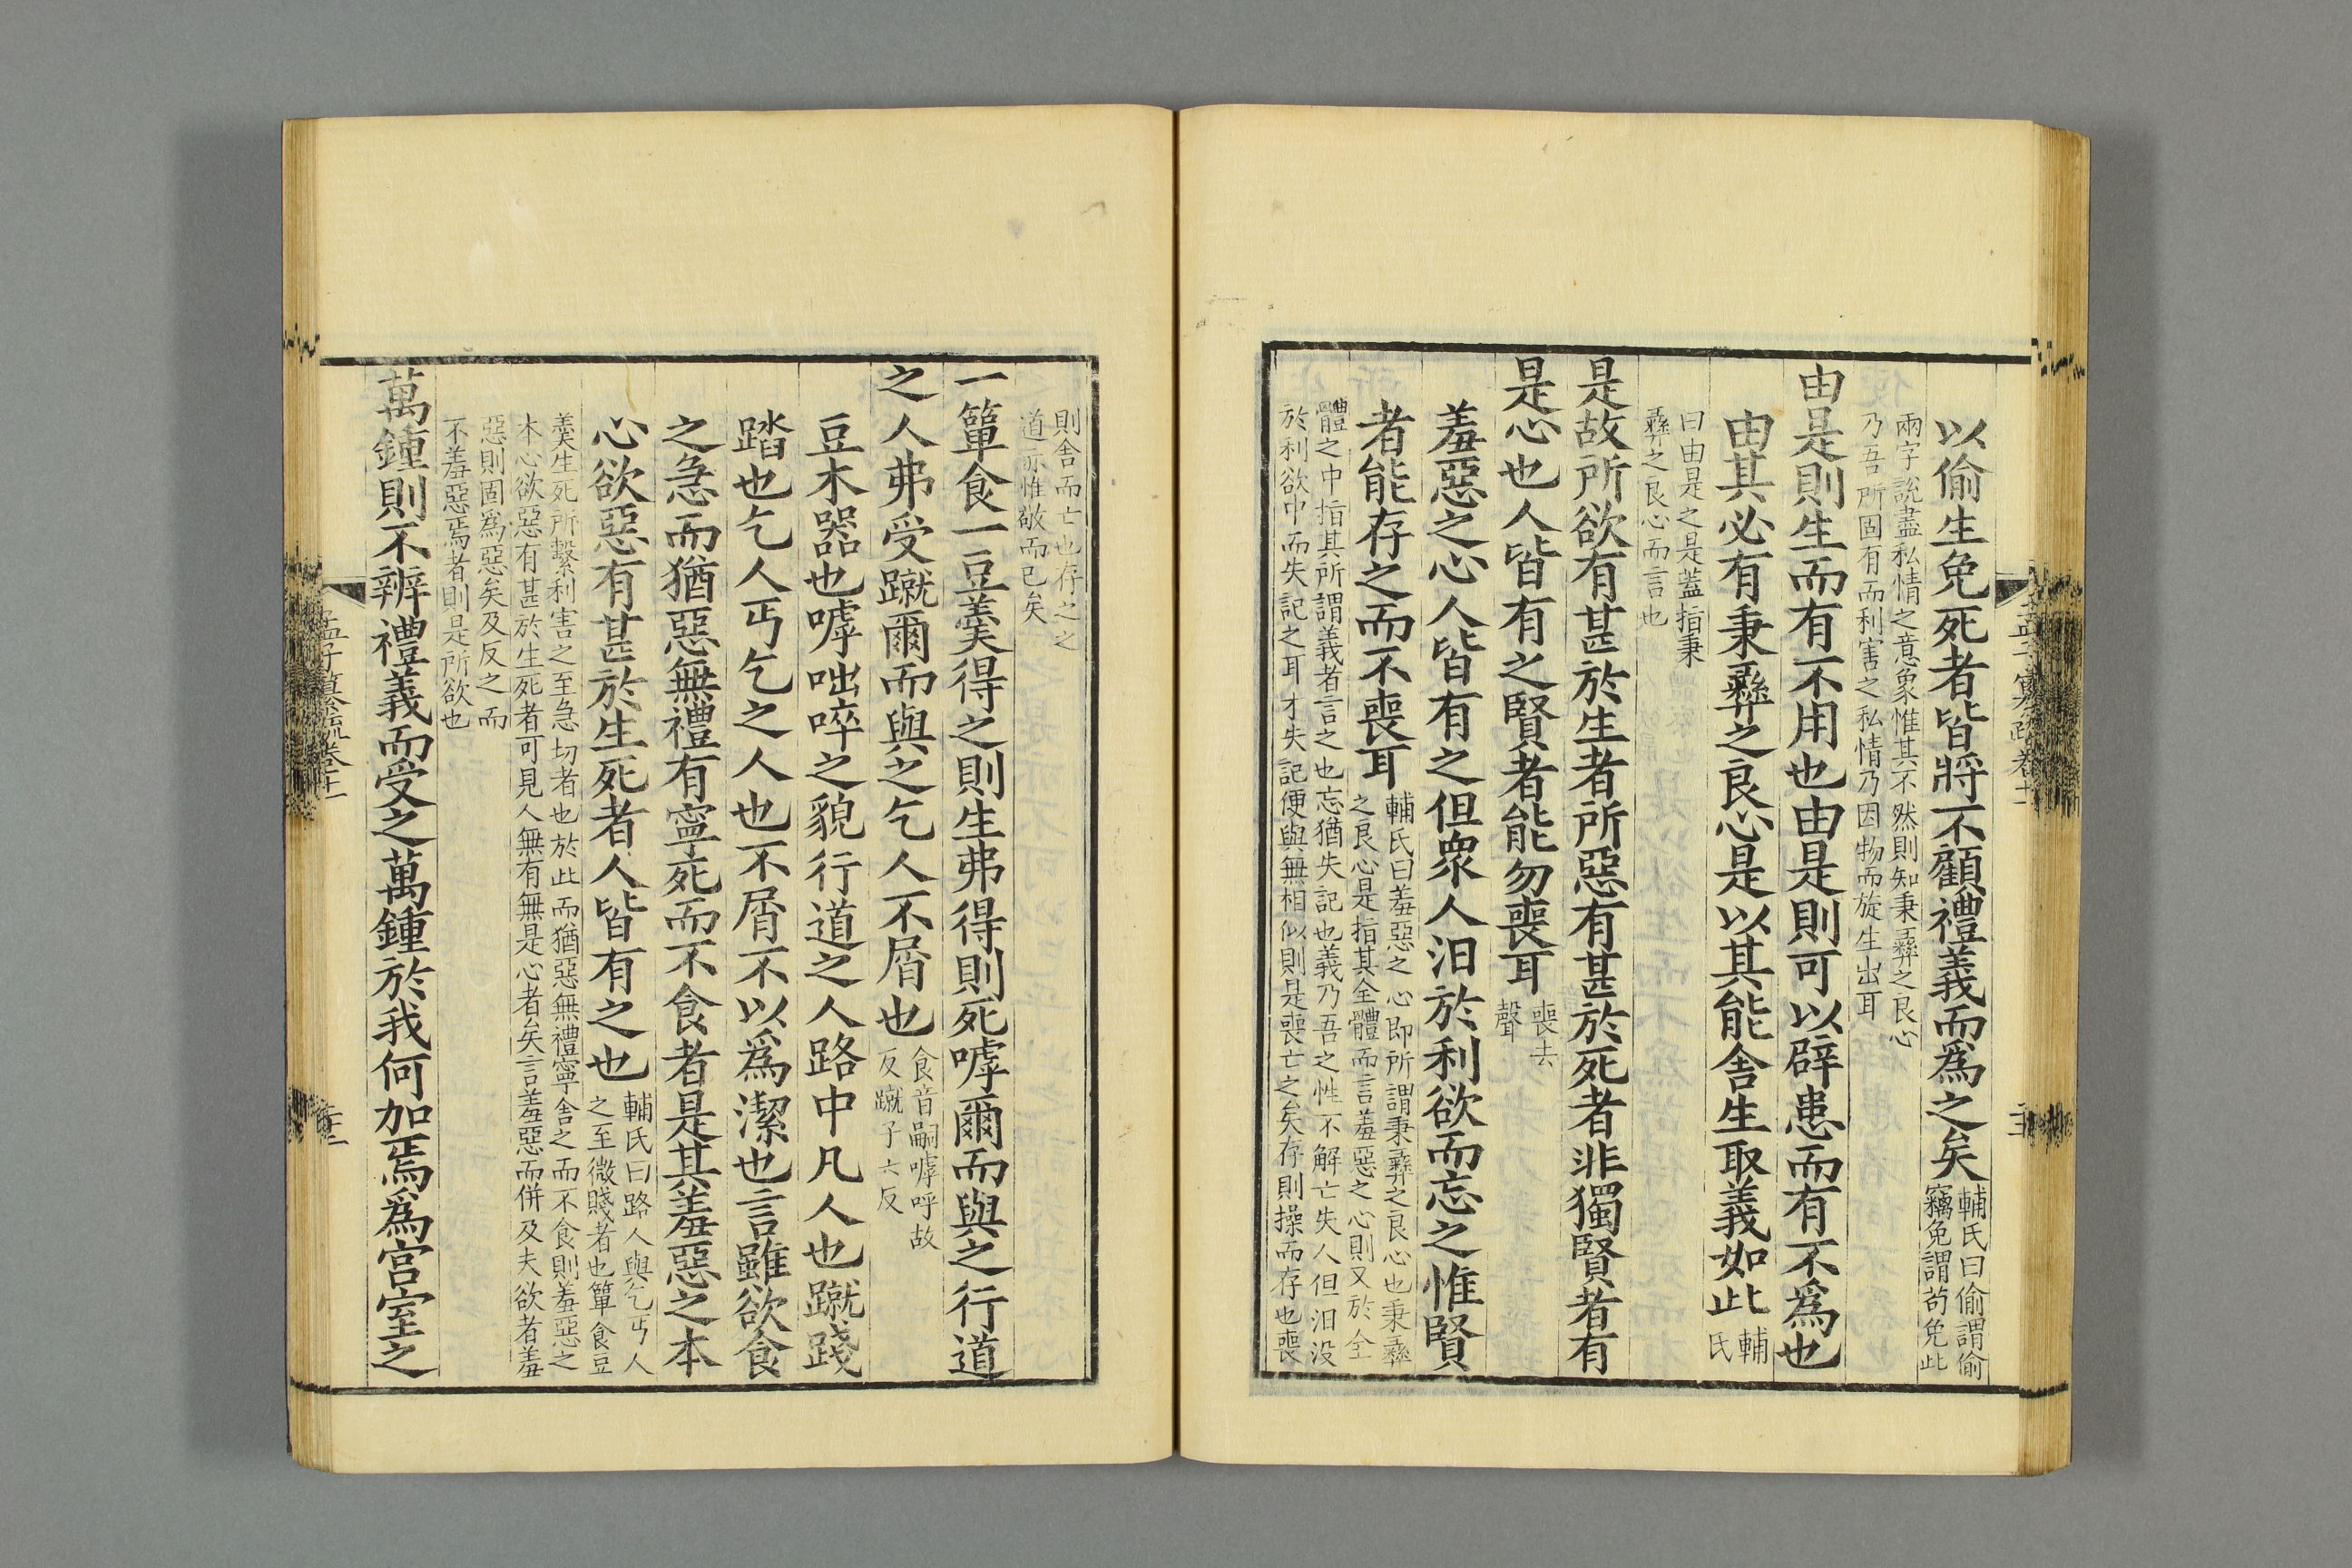 以偷生免死者皆將不顧禮義而爲之矣
輔氏曰偷謂偷
竊免謂苟免此
兩字說盡私情之意象惟其不然則知秉彝之良心
乃吾所固有而利害之私情乃因物而旋生出耳
由是則生而有不用也由是則可以辟患而有不爲也
由其必有秉彝之良心是以其能舍生取義如此
輔
氏
曰由是之是蓋指秉
彝之良心而言也
是故所欲有甚於生者所惡有甚於死者非獨賢者有
是心也人皆有之賢者能勿喪耳
喪去
聲
羞惡之心人皆有之但衆人汨於利欲而忘之惟賢
者能存之而不喪耳
輔氏曰羞惡之心即所謂秉彝之良心也秉彝
之良心是指其全體而言羞惡之心則又於全
體之中指其所謂義者言之也忘猶失記也義乃吾之性不解亡失人但汨没
於利欲中而失記之耳才失記便與無相似則是喪亡之矣存則操而存也喪
孟子纂疏卷十一
則舍而亡也存之之
道亦惟敬而已矣
一簞食一豆羹得之則生弗得則死嘑爾而與之行道
之人弗受蹴爾而與之乞人不屑也
食音嗣嘑呼故
反蹴子六反
豆木器也嘑咄啐之貌行道之人路中凡人也蹴踐
踏也乞人丐乞之人也不屑不以爲潔也言雖欲食
之急而猶惡無禮有寧死而不食者是其羞惡之本
心欲惡有甚於生死者人皆有之也
輔氏曰路人與乞丐人
之至微賤者也簞食豆
羹生死所繫利害之至急切者也於此而猶惡無禮寧舍之而不食則羞惡之
本心欲惡有甚於生死者可見人無有無是心者矣言羞惡而併及夫欲者羞
惡則固爲惡矣及反之而
不羞惡焉者則是所欲也
萬鍾則不辨禮義而受之萬鍾於我何加焉爲宮室之
孟子纂疏卷十一